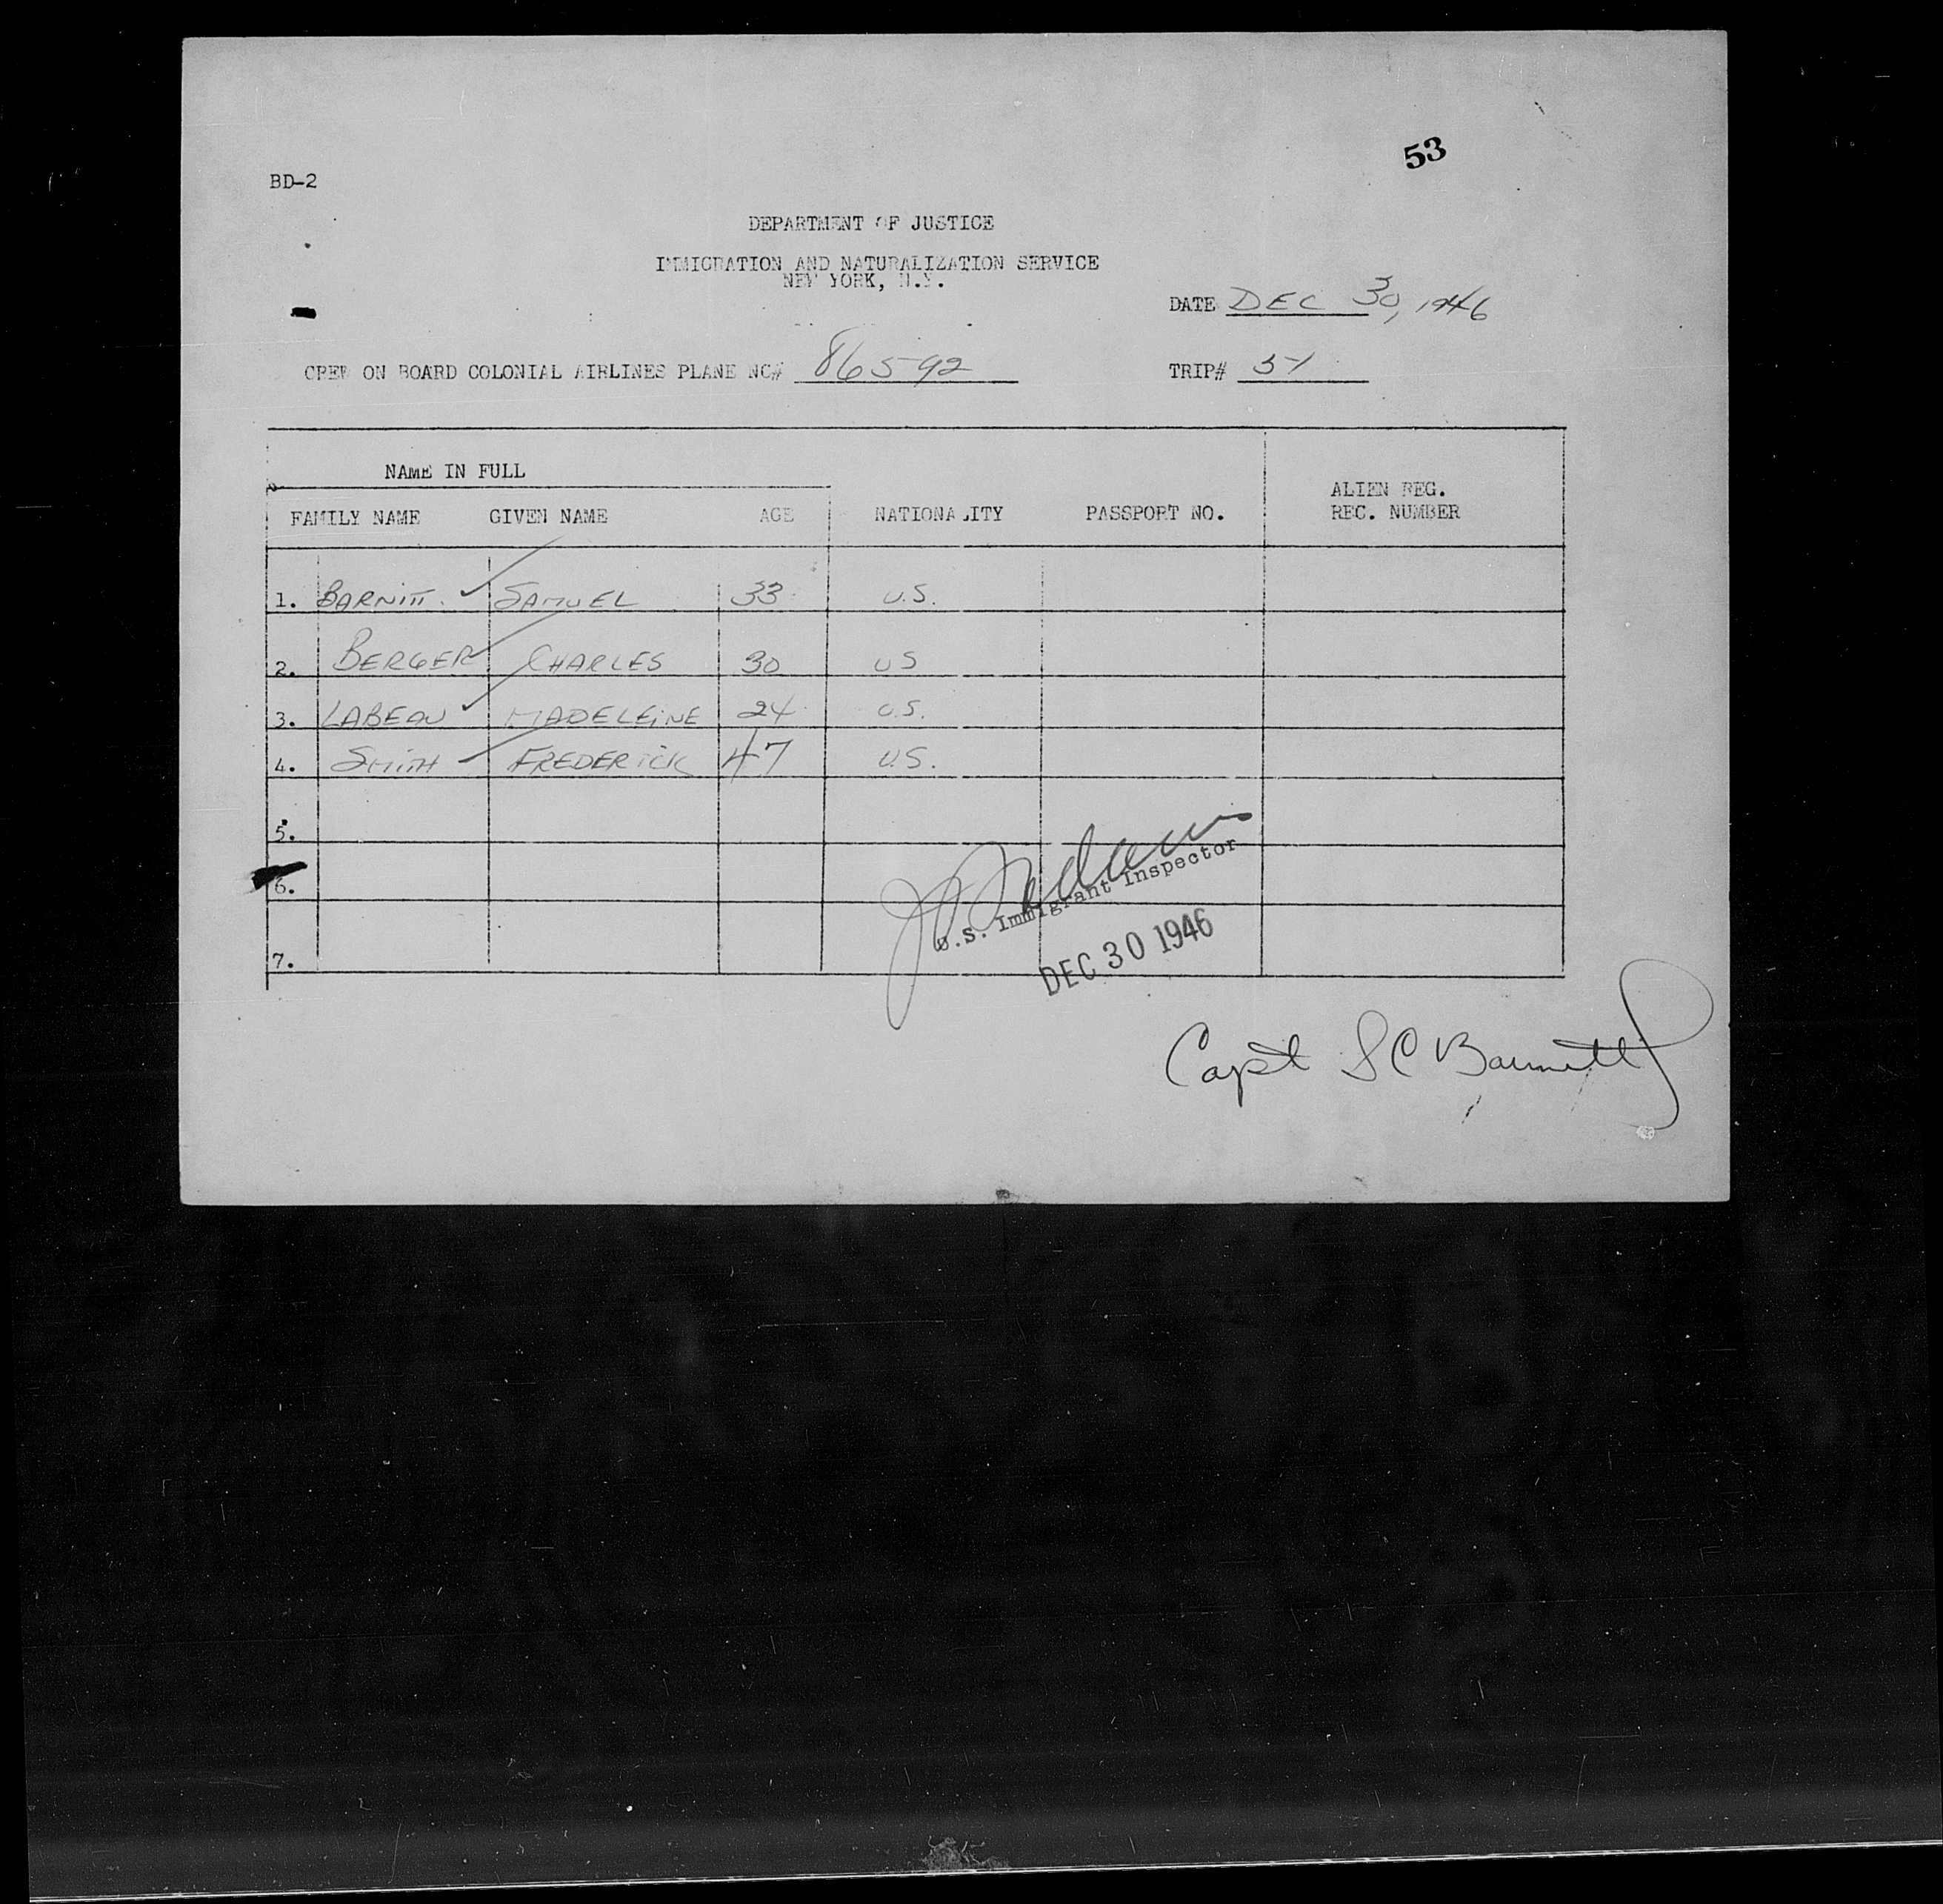 53
BD-2
DEPARTMENT OF JUSTICE
IMMIGRATION AND NATURALIZATION SERVICE
NEW YORK, N.Y.
DATE DEC 30, 1946
CREW ON BOARD COLONIAL AIRLINES PLANE NC# 86592 TRIP# 51
NAME IN FULL
FAMILY NAME GIVEN NAME AGE NATIONALITY PASSPORT NO. ALIEN REG. REC. NUMBER
1. BARNITT SAMUEL 33 U.S.
2. BERGER CHARLES 30 US
3. LABEAU MADELEINE 24 U.S.
4. SMITH FREDERICK 47 U.S.
5.
6.
7.
U.S. Immigrant Inspector
DEC 30 1946
Capt S C Barnitt